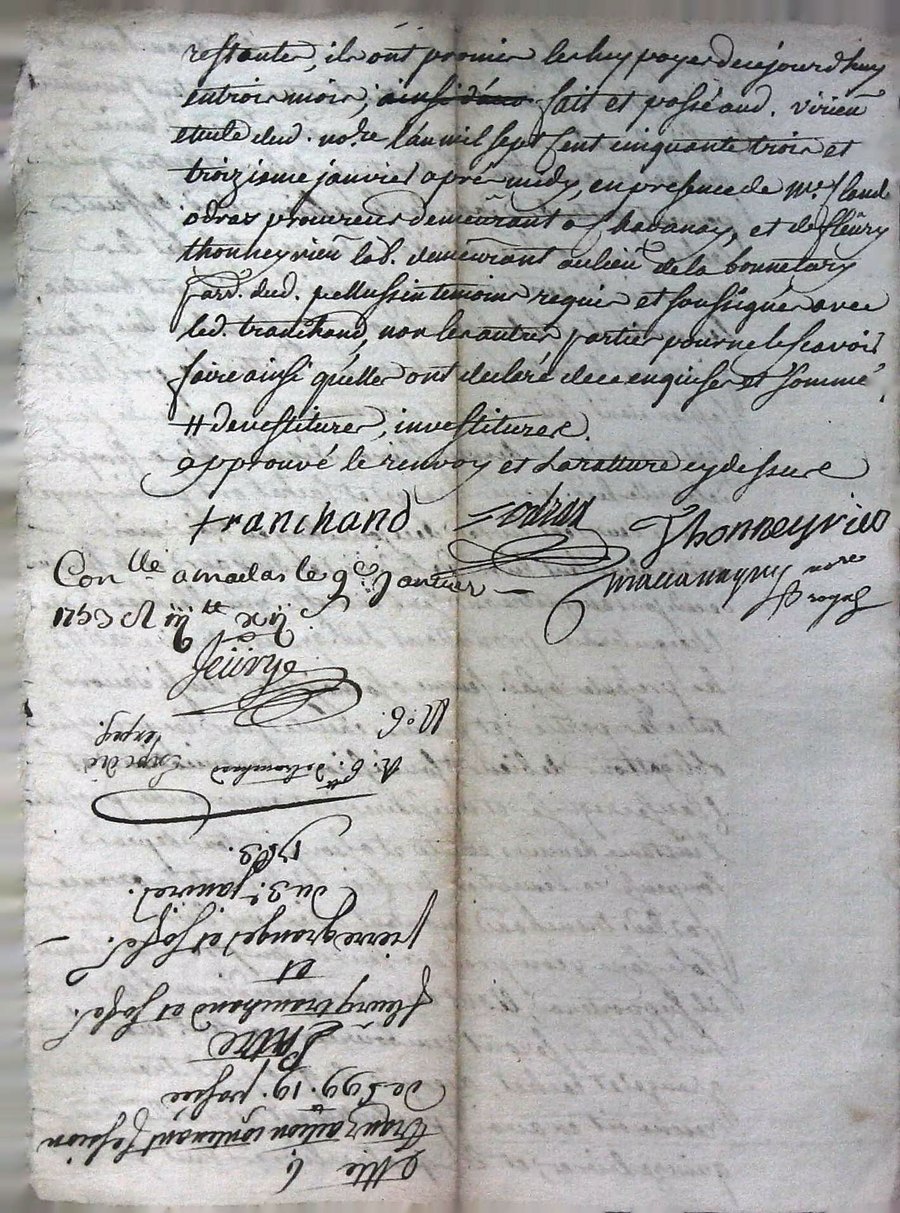 restante, ils ont promis les luy payer de cejourdhuy
en trois mois; ainsi d'avo fait et passé aud. virieu
etude dud. no.re l'an mil sept cent cinquante trois et
troizieme janvier aprés midy, en presence de Me. Claud
odras procureur demeurant a Chavanay, et de fleury
thonneyrieu lab. demeurant au lieu de la bonnetary
parr. dud. pellussin temoins requis et soussignés avec
led. tranchand, non les autres parties pour ne le scavoir
faire ainsi qu'elles ont declaré de ce enquises et sommé.
# devestitures, investitures.
approuvé le renvoy et la ratture cy dessus
tranchand odras Thonneyrieu
nore royal
Con.lle a maclas le 9e. janvier
1753 R iij tt xij s
N.o 6.
R. 6. tranchand
Expedié
transaction contenant cession
de L 99. 19. passée
Entre
fleury tranchand et sa fe.
et
pierre granger et sa fe.
du 3e. janvier
1753.